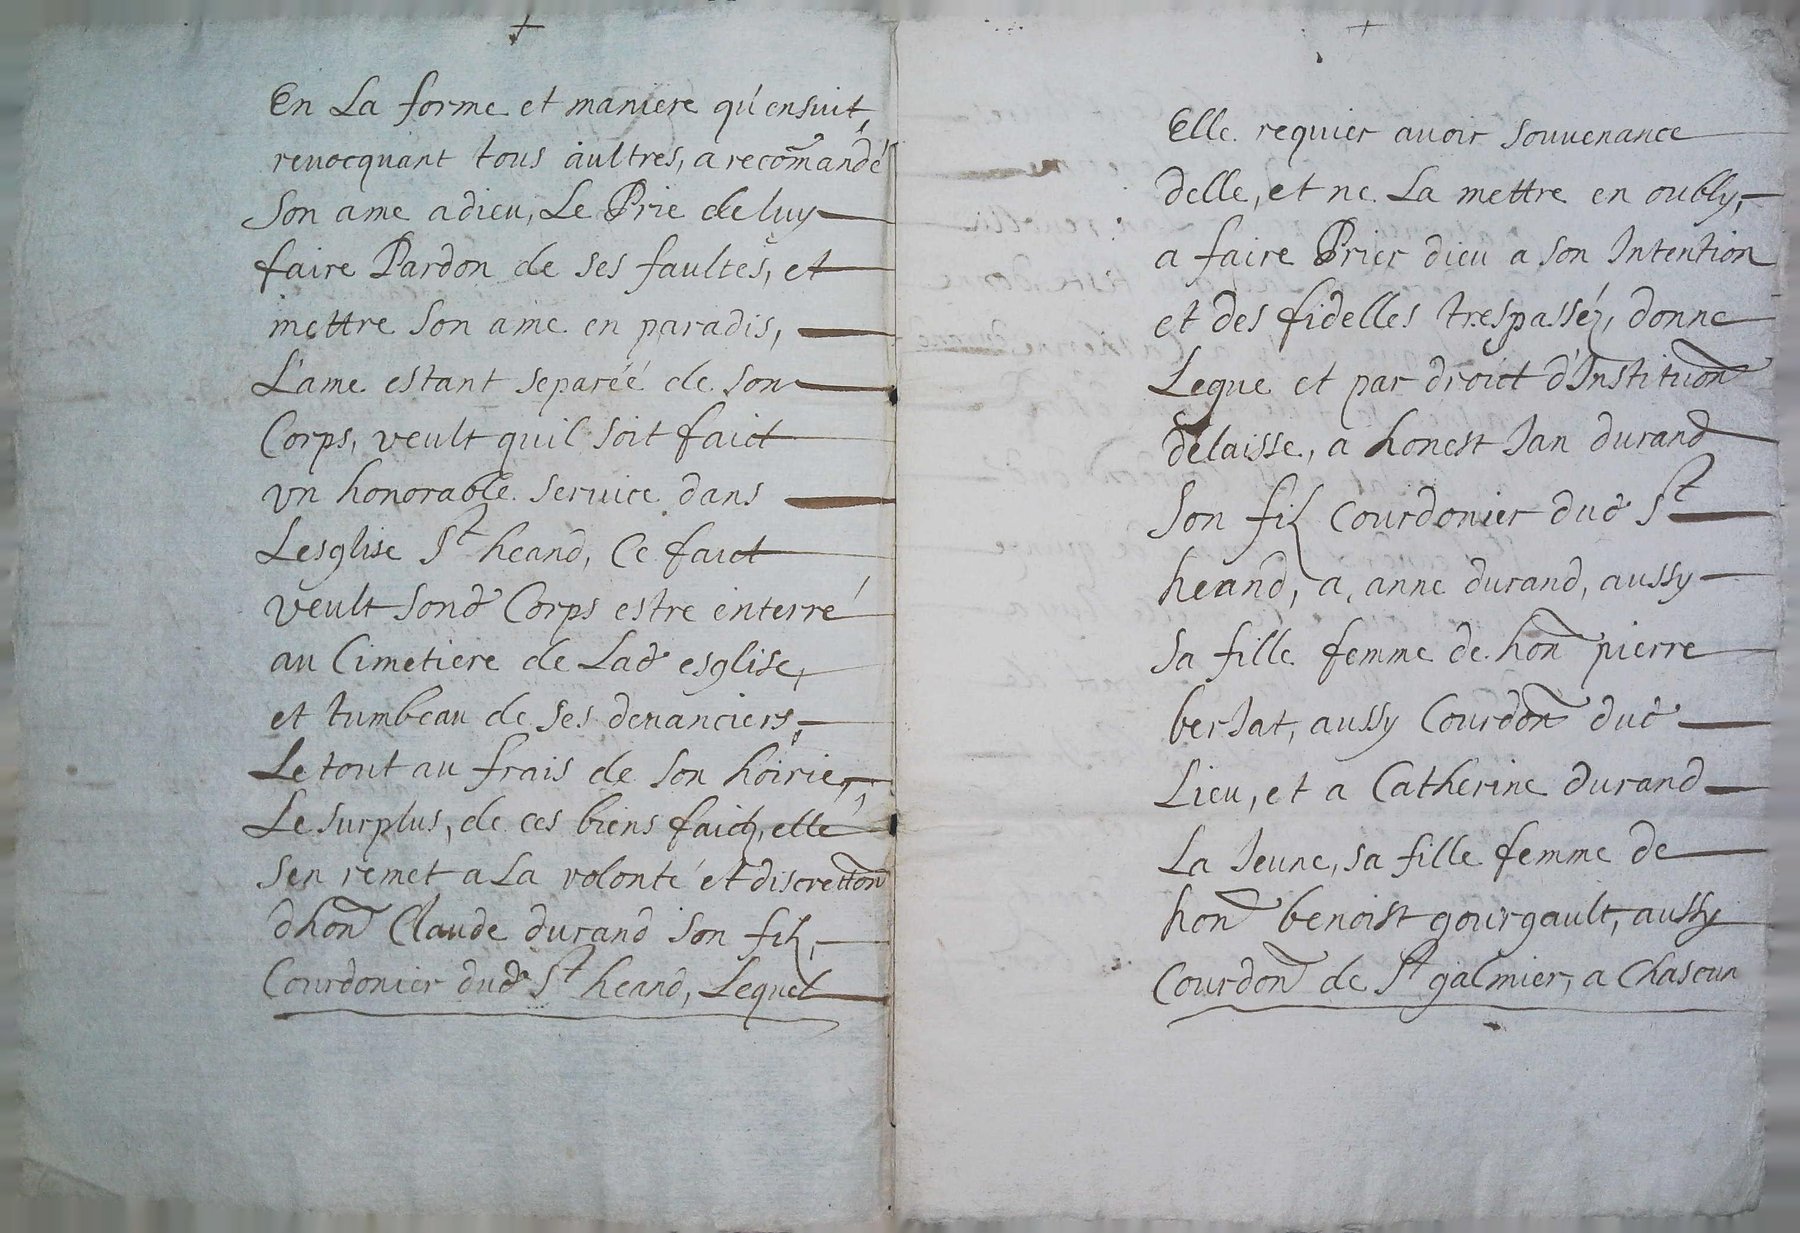 En La forme et maniere qu'ensuit,
revocquant tous aultres, a recomandé
Son ame a dieu, Le Prie de luy
faire Pardon de ses faultes, et
mettre Son ame en paradis,
L'ame estant separéé de son
Corps, veult quil soit faict
vn honorable service dans
Lesglise St heand, Ce faict
veult sond Corps estre enterré
au Cimetiere de Lad esglise,
et tumbeau de ses devanciers,
Le tout au frais de son hoirie,
Le surplus, de ces biens faictz, elle
Sen remet a La volonté et discrettion
d'hon Claude durand son filz,
Courdonier dud St heand, Lequel
Elle requier avoir souvenance
delle, et ne La mettre en oubly,
a faire Prier dieu a son Intention
et des fidelles trespasséz, donne
Legue et par droict d'Institution
delaisse, a honest Jan durand
Son filz Courdonier dud St
heand, a anne durand, aussy
sa fille femme de hon pierre
berJat, aussy Courdon dud
Lieu, et a Catherine durand
La Jeune, sa fille femme de
hon benoist gourgault, aussy
Courdon de St galmier, a Chascun